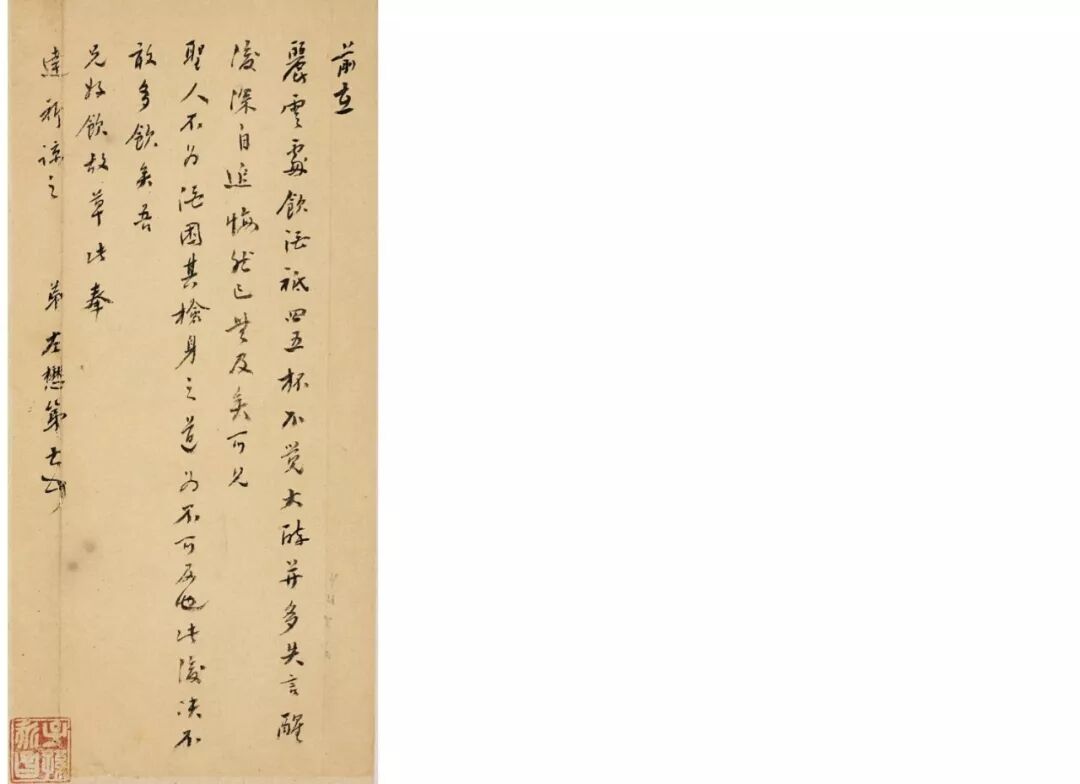 前在
麗雲處飲酒祗四五杯不覺大醉并多失言醒
後深自追悔然已無及矣可見
聖人不為酒困其檢身之道為不可及也此後決不
敢多飲矣吾
兄好飲故草此奉
達祈諒之 弟左懋第